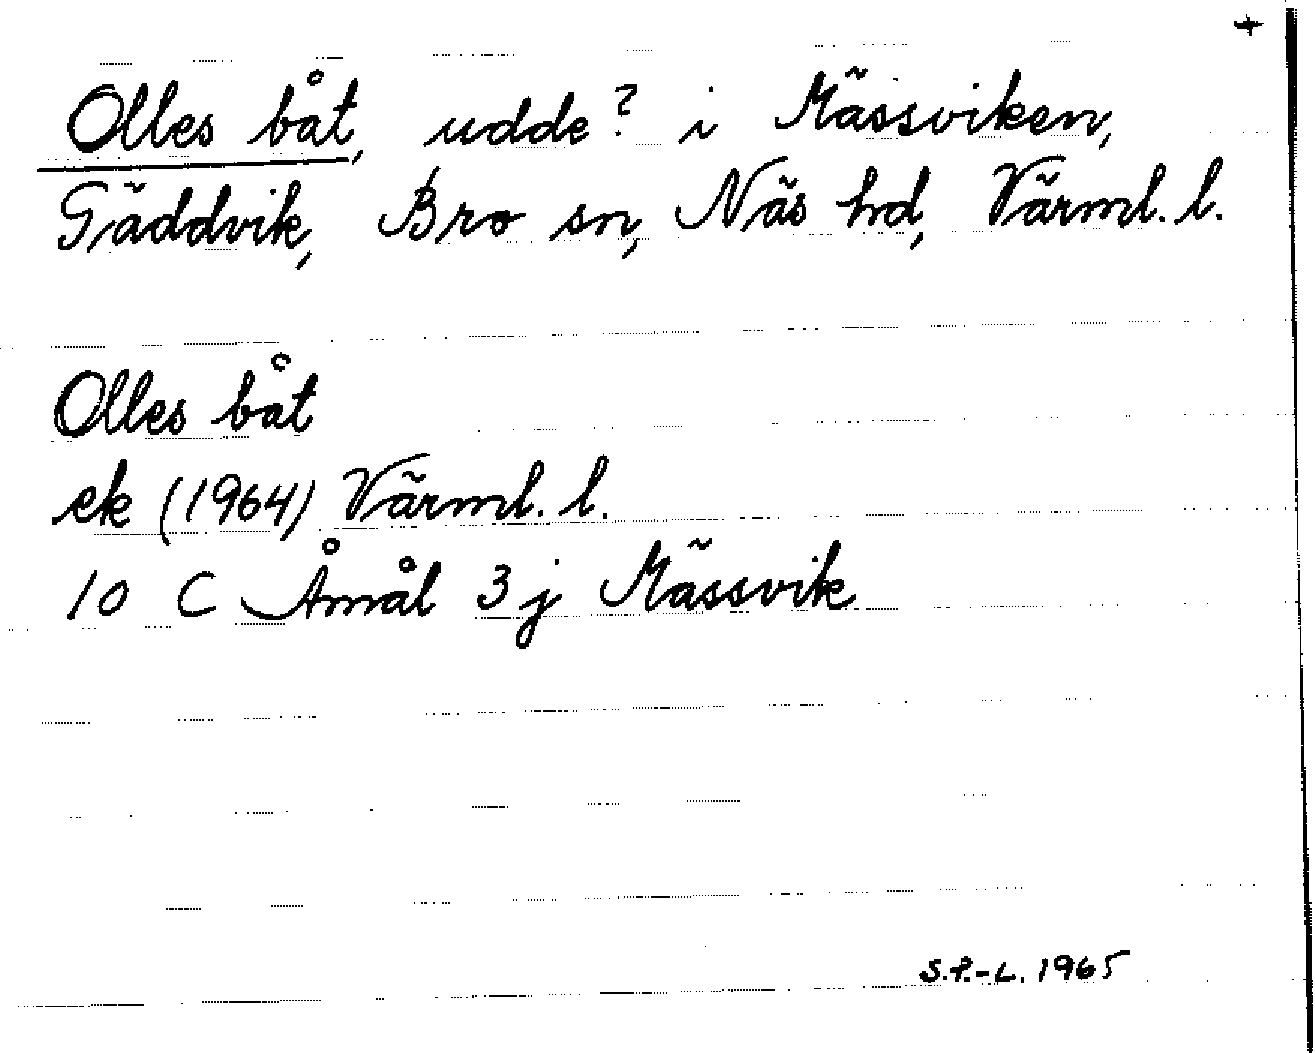 +
Olles båt, udde? i Mässviken,
Gäddvik, Bro sn, Näs hd, Värml. l.
Olles båt
ek (1964) Värml. l.
10 C Åmål 3 j Mässvik
S.P.-L. 1965